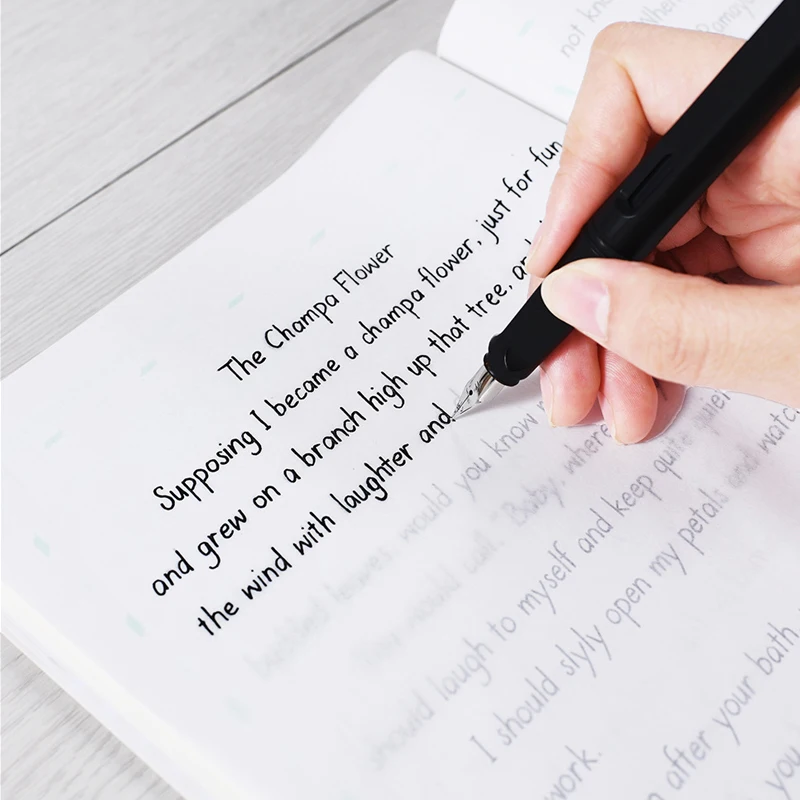 not
The Champa Flower
Supposing I became a champa flower, just for fun
and grew on a branch high up that tree,
the wind with laughter and
would you know
Baby, where
should laugh to myself and keep quite quiet
I should slyly open my petals and watch
after your bath
work.
you